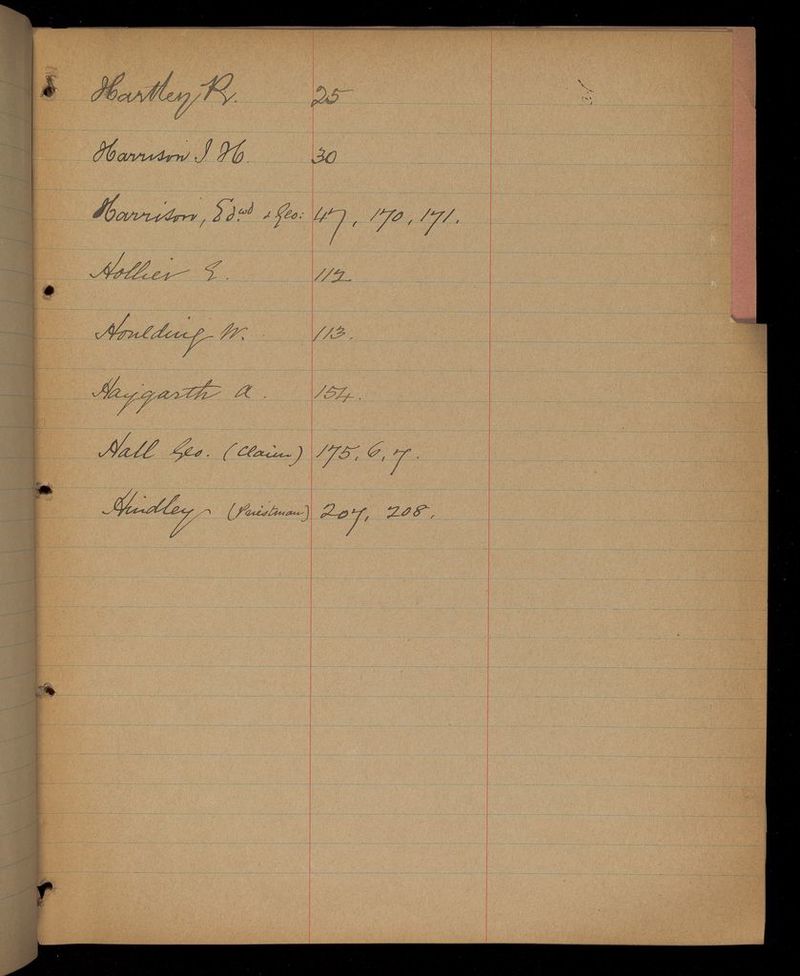 Hartley R. 25
Harrison J H. 30
Harrison, Edwd & Geo: 47, 170, 171.
Hollier E. 112
Houlding W. 113.
Haygarth A. 154.
Hall Geo. (Claim) 175, 6, 7.
Hindley (Priestman) 207, 208.